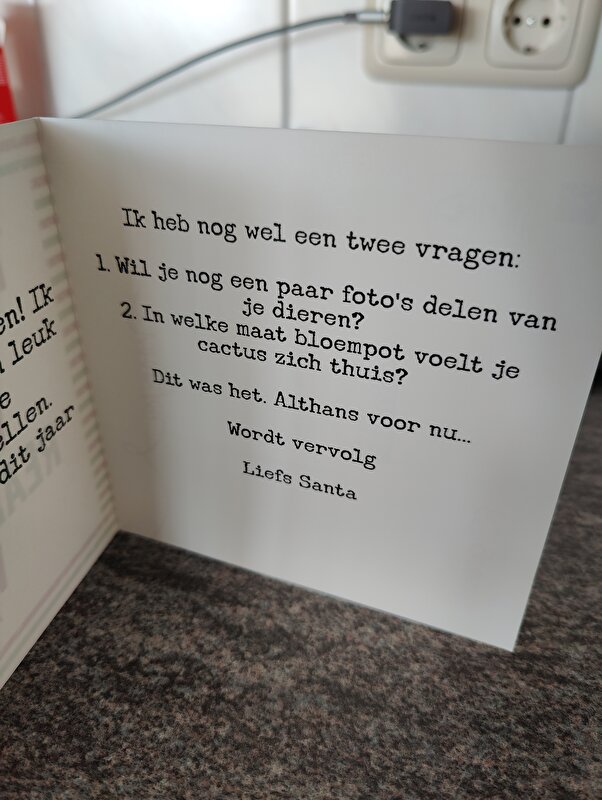 en! Ik
leuk
e
ellen.
dit jaar
Ik heb nog wel een twee vragen:
1. Wil je nog een paar foto's delen van
je dieren?
2. In welke maat bloempot voelt je
cactus zich thuis?
Dit was het. Althans voor nu...
Wordt vervolg
Liefs Santa